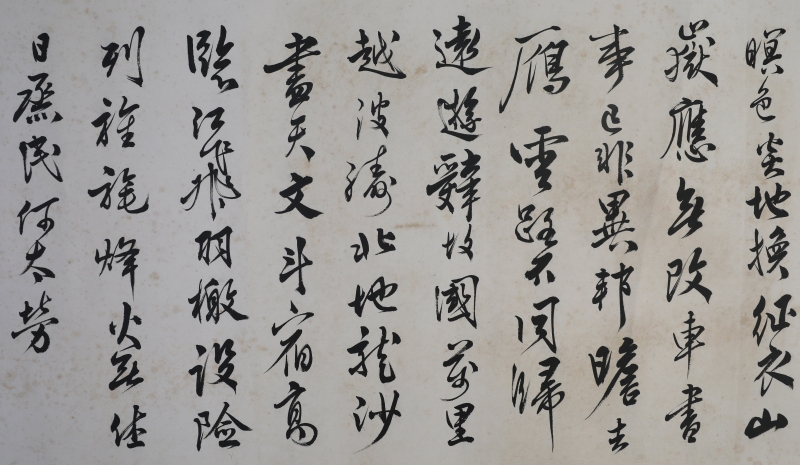 暝色炎地換征衣山
嶽應無改車書
事已非異邦瞻去
雁雲路不同歸
遠遊辭故國萬里
越波濤北地龍沙
盡天文斗宿高
臨江飛羽檄設險
列旌旄烽火無佳
日烝民何太勞